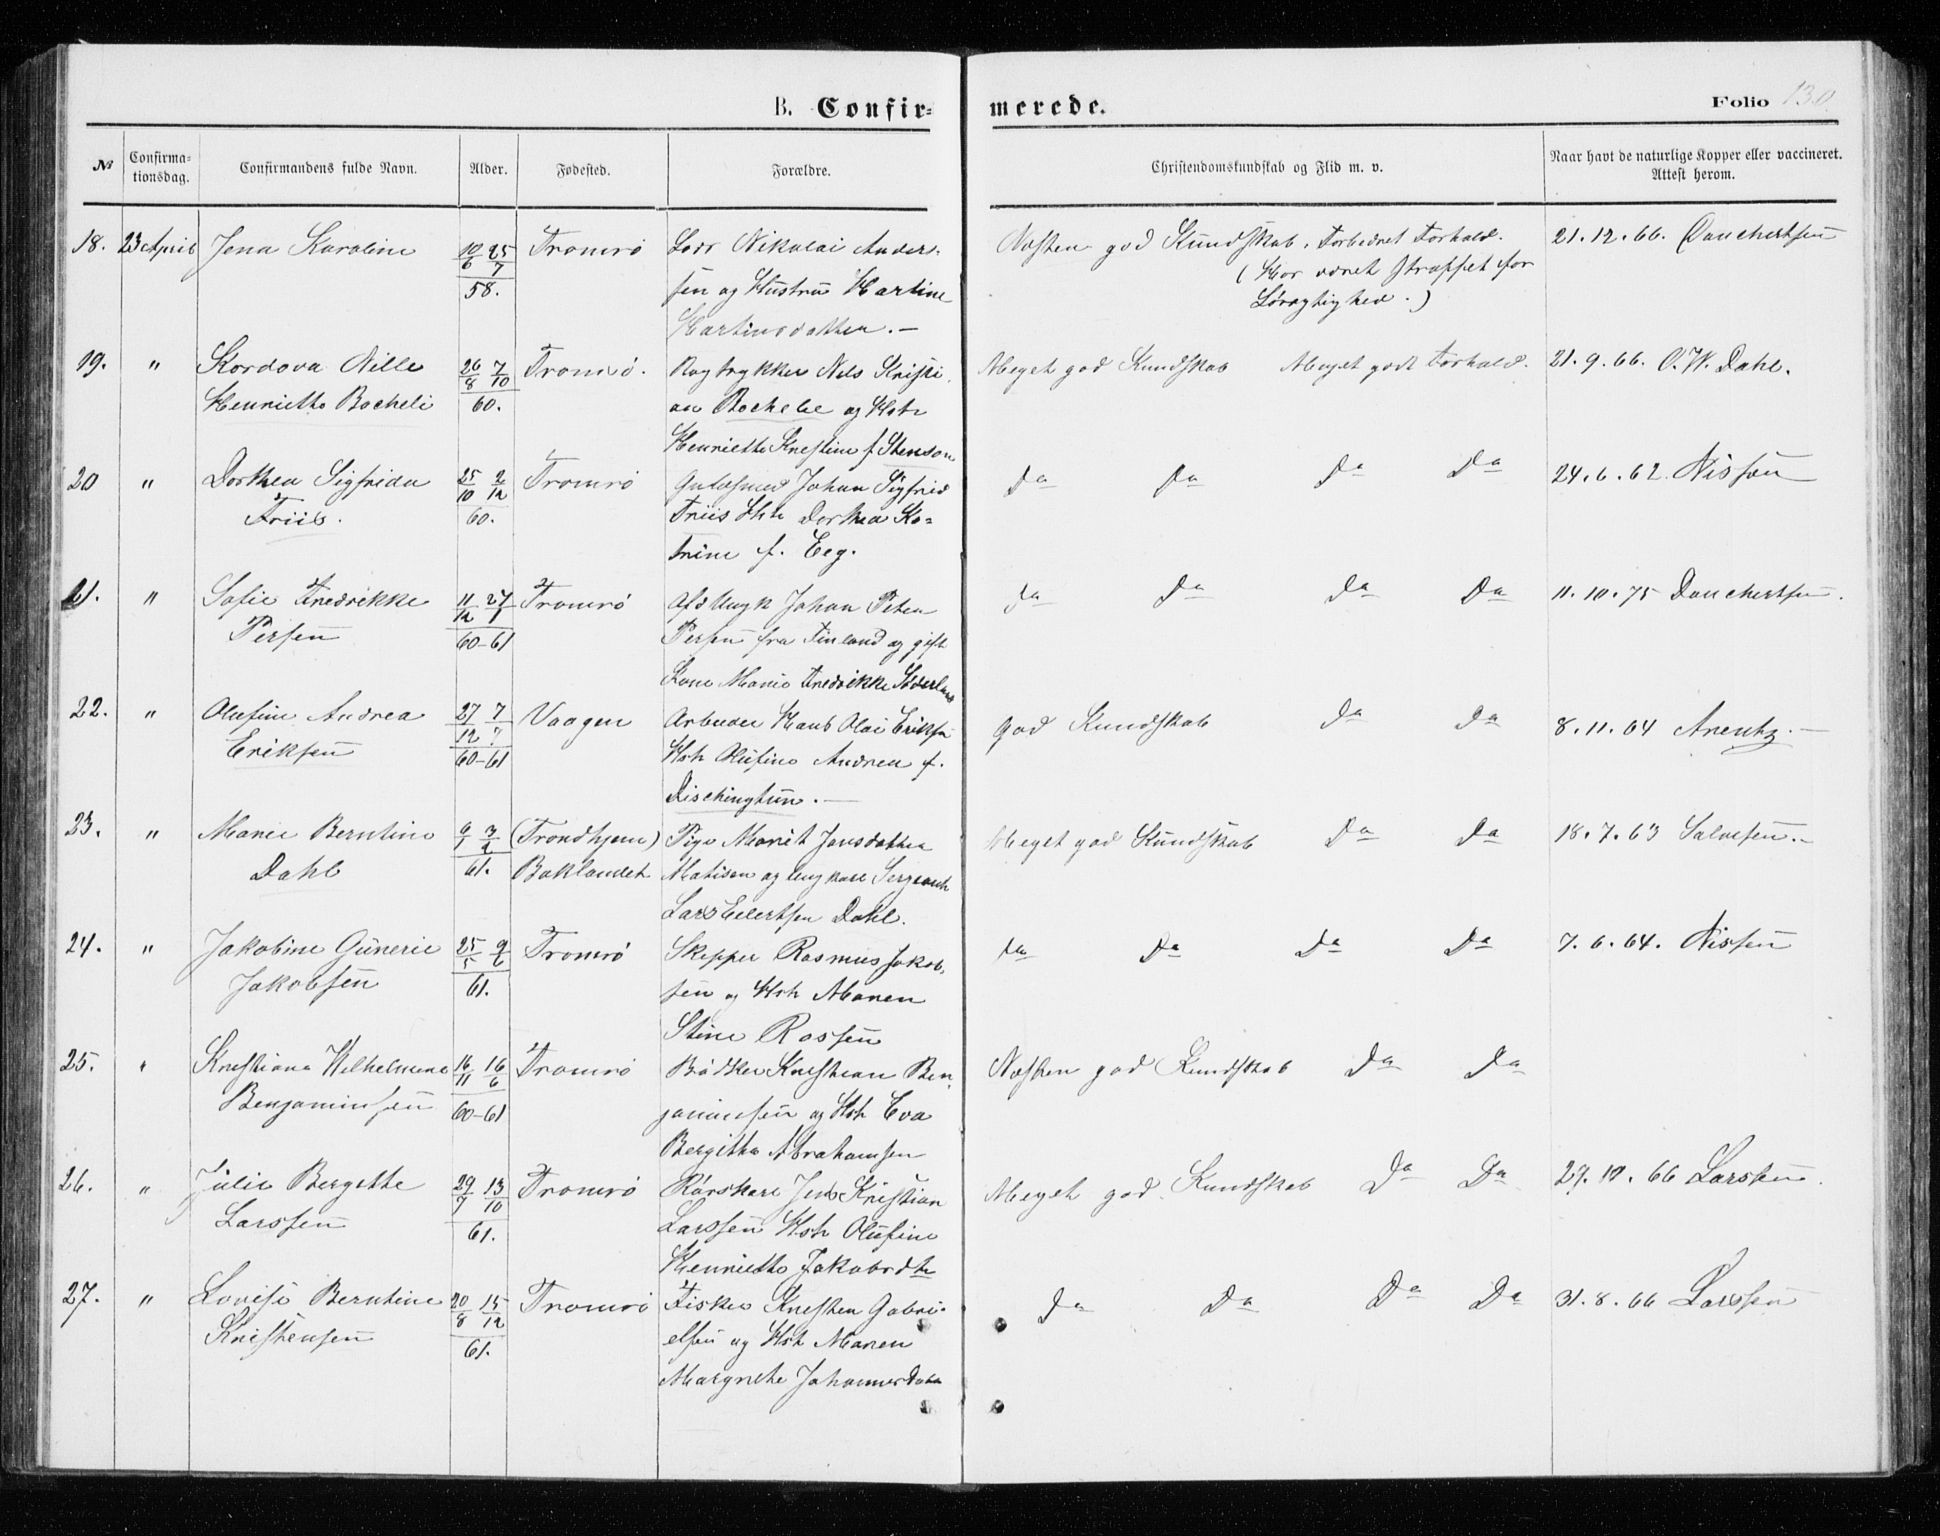 B. Confir=
merede.
Folio 130.
№
Confirma=
tionsdag.
Confirmandens fulde Navn.
Alder.
Fødested.
Forældre.
Christendomskundskab og Flid m. v.
Naar havt de naturlige Kopper eller vaccineret.
Attest herom.
18. 23 April Jena Karoline 10/6 25/7 58. Tromsø Lods Nikolai Anders-
sen og Hustru Martine
Martinsdatter. —
Næsten god Kundskab. Forbedret Forhold.
(Har været straffet for
Løsagtighed.)
21.12.66. Danchertsen
19. " Kordova Nille
Henriette Bocheli
26/8 7/10 60. Tromsø. Bogtrykker Nels Kristi
an Bochelie og Hstr
Henriette Kristine f Stenson
Meget god Kundskab Meget godt Forhold. 21.9.66. O.W. Dahl.
20 " Dorthea Sigfrida
Friis.
25/10 2/12 60. Tromsø Guldsmed Johan Sigfried
Friis Hstr Dorthea Ka=
trine f. Eeg.
Da Da Da Da 24.6.62. Nissen
21. " Sofie Fredrikke
Persen
11/12 27/1 60-61 Tromsø Johan Peter
Persen fra Finland og gift
Kone Marie Fredrikke Söderlund
Da Da Da Da 11.10.75 Danchertsen.
22. " Olufine Andrea
Eriksen
27/12 7/7 60-61 Vaagen Arbeider Hans Olai Eriksen
Hstr Olufine Andrea f.
Dischingtun. —
God Kundskab Da Da 8.11.64 Arentz. —
23. " Marie Berntine
Dahl
9/1 3/2 61. (Trondhjem)
Baklandet
Pige Marit Jonsdatter
Matisen og Ungkarl Sergeant
Lars Eilertsen Dahl.
Meget god Kundskab Da Da 18.7.63 Salvesen. —
24. " Jakobine Gunerie
Jakobsen
25/5 9/6 61. Tromsø Skipper Rasmus Jakob-
sen og Hstr Maren
Stine Rossen
Da Da Da Da 7.6.64. Nissen
25. " Kristiana Wilhelmine
Benjaminsen
16/11 16/6 60-61 Tromsø Bødker Kristian Ben-
jaminsen og Hstr Eva
Bergitha Abrahamsen
Næsten god Kundskab Da Da
26. " Julie Bergitte
Larssen
29/7 13/10 61. Tromsø Jens Kristian
Larssen Hstr Olufine
Henriette Jakobsdtr
Meget god Kundskab Da Da 27.10.66 Larssen.
27. " Lovise Berntine
Kristensen
20/8 15/12 61. Tromsø Fisker Kristen Gabri-
elsen og Hstr Maren
Margrethe Johannesdatr
Da Da Da Da 31.8.66 Larssen